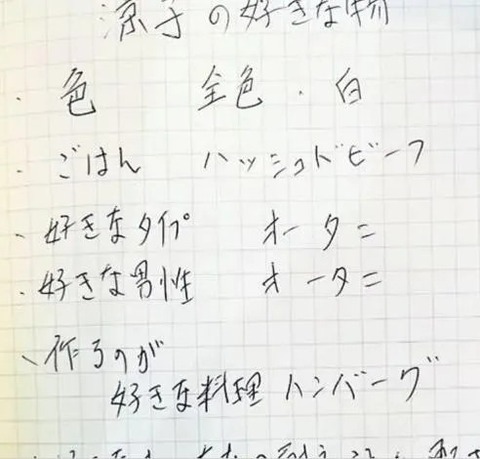 涼子の好きな物
・色 全色・白
・ごはん ハッシュドビーフ
、好きなタイプ オータニ
・好きな男性 オータニ
、作るのが
好きな料理 ハンバーグ